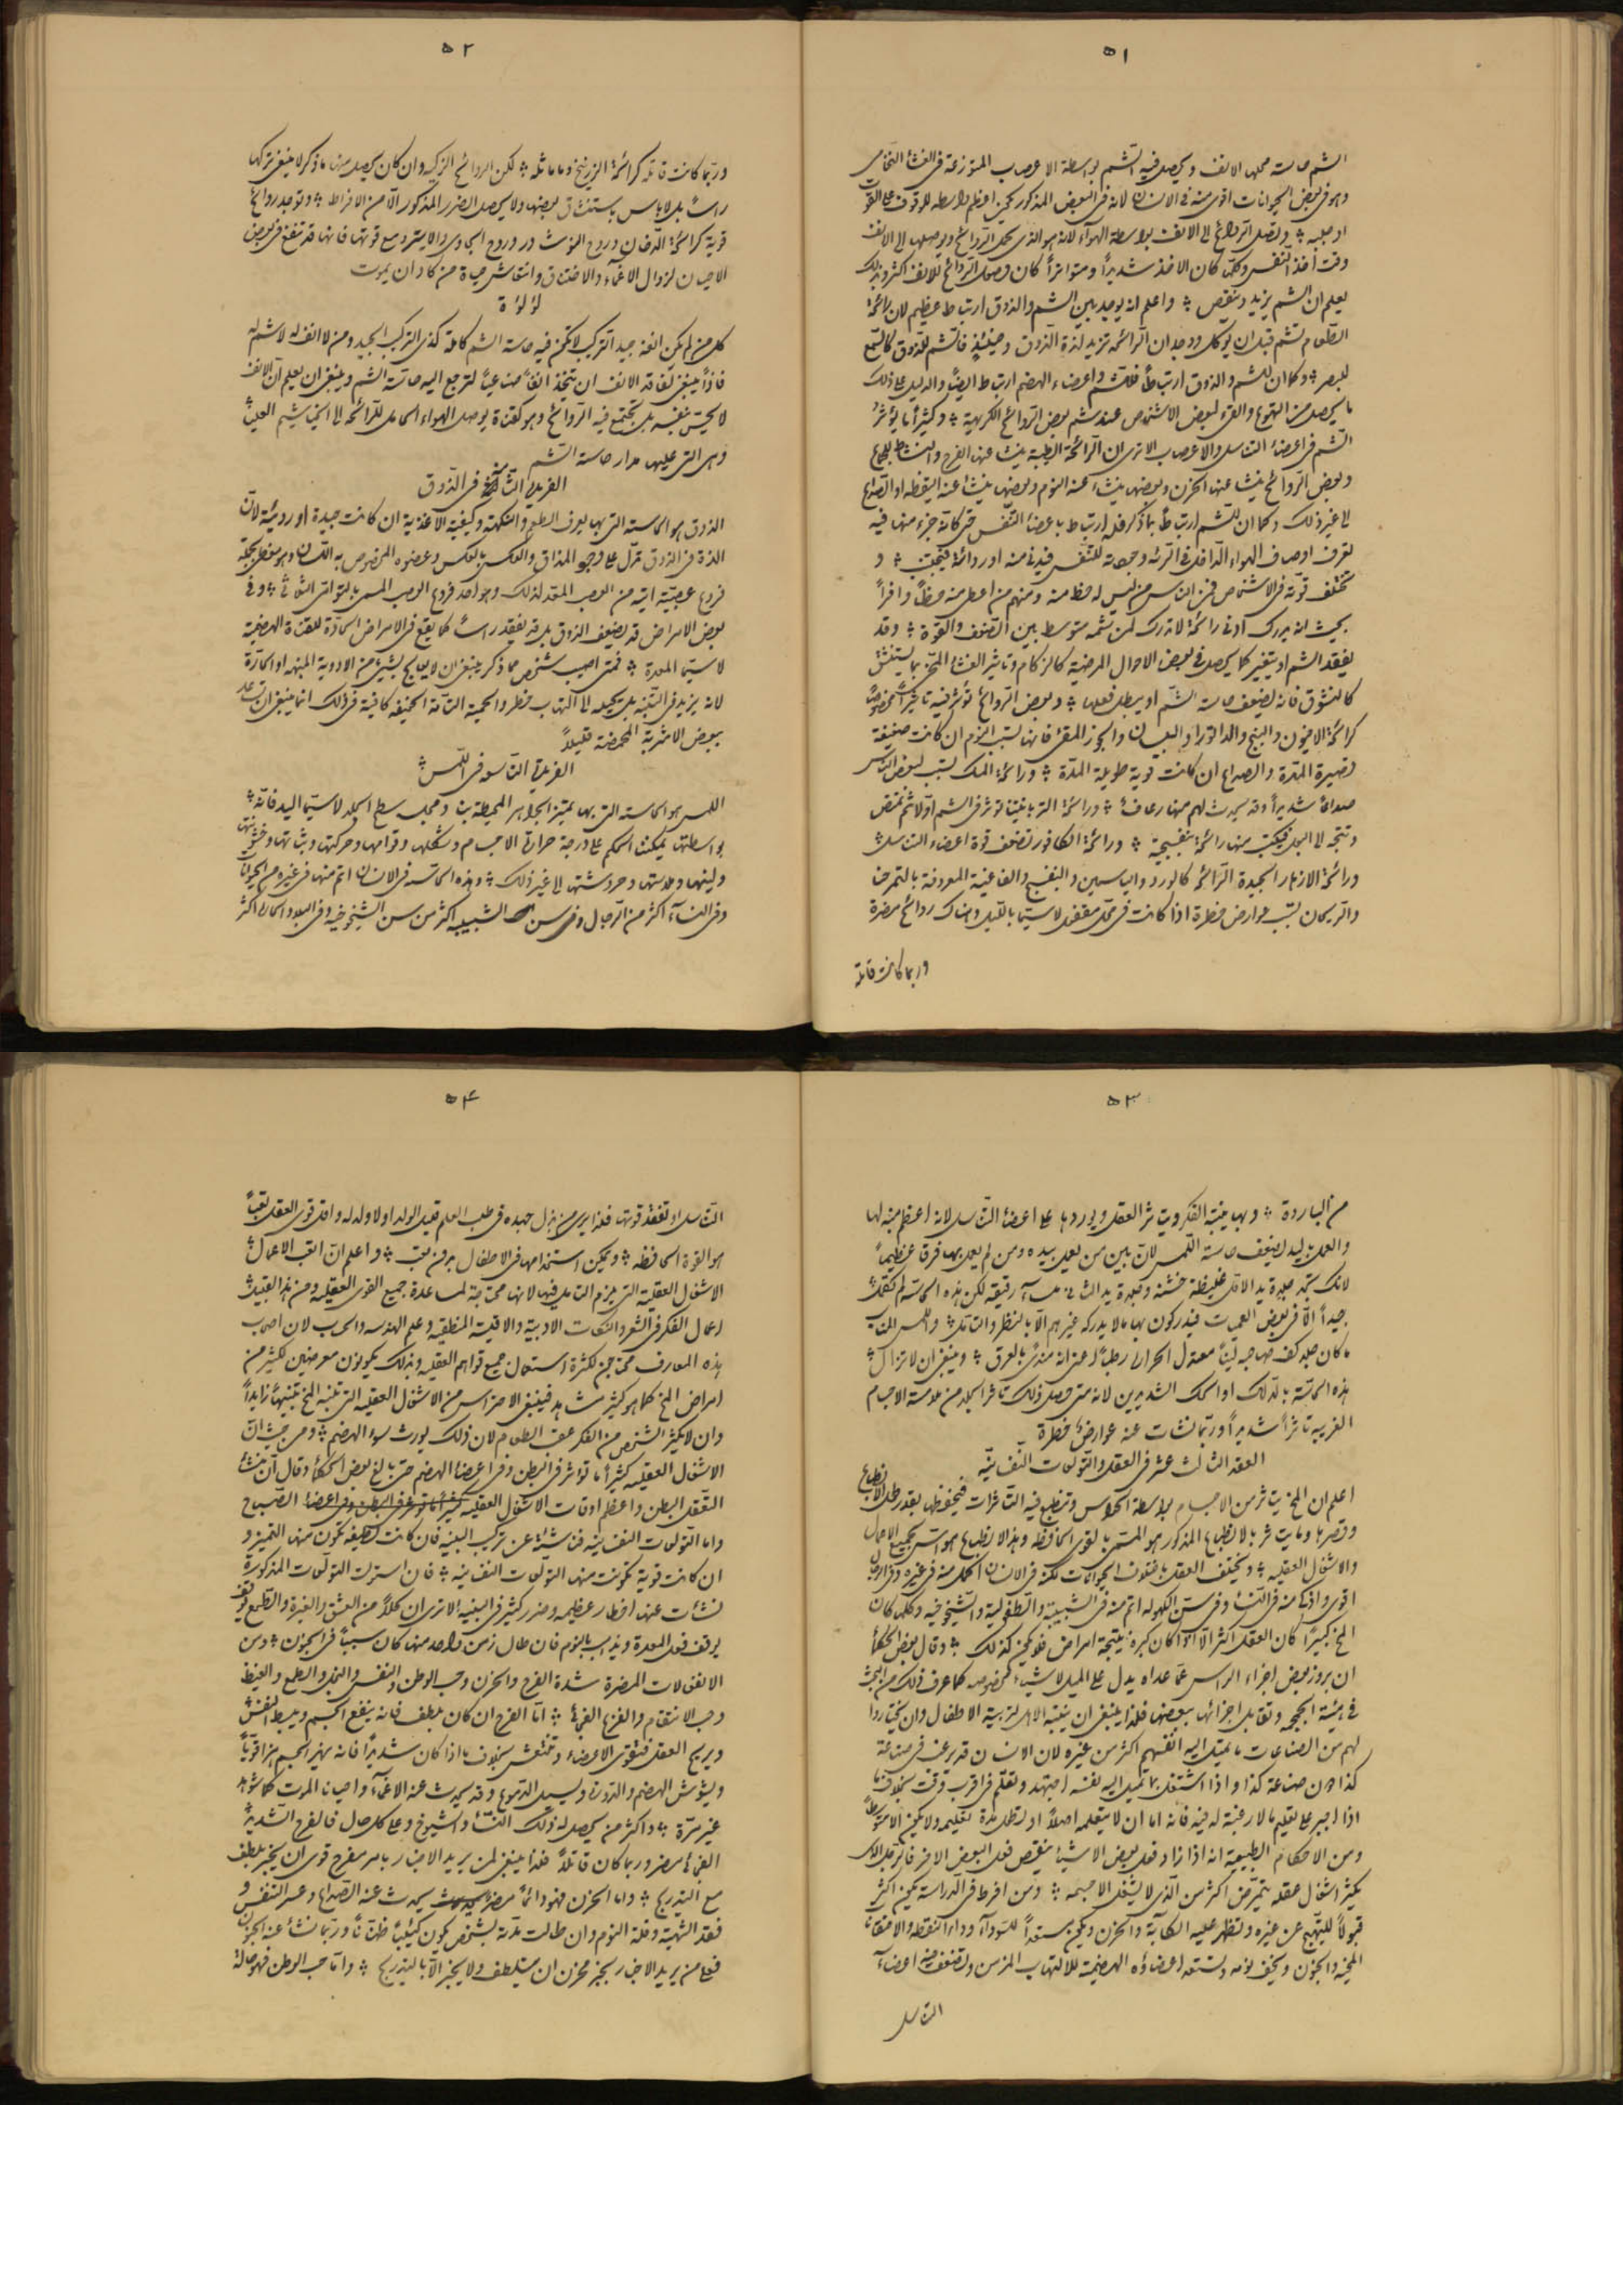 ٥١
الشم حاسته محلها الانف ويحصل فيه الشم بواسطة الاعصاب المتوزعة فى الغشاء النخامى
وهو فى بعض الحيوانات اقوى منه فى الانسان لانه فى البعض المذكور يكون اعظم واسطه للوقوف على القوت
او جلبه ؞ وتصل الروائح الى الانف بواسطة الهوآء لانه هو الذى يحمل الروائح ويوصلها الى الانف
وقت اخذ النفس وكلما كان الاخذ شديداً ومتواتراً كان وصول الروائح للانف اكثر وبذلك
يعلم ان الشم يزيد وينقص ؞ واعلم انه يوجد بين الشم والذوق ارتباط عظيم لان رائحة
الطعام تشم قبل ان يوكل ووجدان الرائحه تزيد لذة الذوق وحينئذ فالشم للذوق كالسمع
للبصر ؞ وكما ان للشم والذوق ارتباطاً فللشم واعضاء الهضم ارتباط ايضاً والدليل على ذلك
ما يحصل من التهوع والقئ لبعض الاشخاص عند شم بعض الروائح الكريهة ؞ وكثيراً ما يؤثر
الشم فى اعضاء التناسل والاعصاب الا ترى ان الرائحة الطيبة ينشأ عنها الفرح والنشاط للجماع
وبعض الروائح ينشأ عنها الحزن وبعضها ينشأ عنه النوم وبعضها ينشأ عنه اليقظه او الصداع
الى غير ذلك وكما ان للشم ارتباطاً بما ذكر فله ارتباط باعضاء التنفس حتى كأنه جزء منها فيه
تعرف اوصاف الهواء الداخل فى الرئه وجودته للتنفس فيدنى منه او رداءته فيجتنب ؞ و
تختلف قوته فى الاشخاص فمن الناس من ليس له حظ منه ومنهم من اعطى منه حظاً وافراً
بحيث انه يدرك ادنى رائحة لا تدرك لمن شمه متوسط بين الضعف والقوة ؞ وقد
يفقد الشم او يتغير كما يحصل فى بعض الاحوال المرضية كالزكام وتاثير الغشاء المخى بما يستنشق
كالنشوق فانه يضعف حاسته الشم او يبطل فعلها ؞ وبعض الروائح تؤثر فيه تاثيراً مخصوصاً
كرائحة الافيون والبنج والداتورا والبيلسان والجوز المقئ فانها تسبب النوم ان كانت ضعيفة
قصيرة المدة والصداع ان كانت قوية طويلة المدة ؞ ورائحة المسك تسبب لبعض الناس
صداعاً شديداً وقد يحدث لهم منها رعاف ؞ ورائحة التربانتينا تؤثر فى الشم اولا ثم تمتص
وتتجه الى البول فيكتسب منها رائحة بنفسجية ؞ ورائحة الكافور تضعف قوة اعضاء التناسل ؞
ورائحة الازهار الجيدة الرائحه كالورد والياسمين والبنفسج والفاغية المعروفة بالتمرحنا
والريحان تسبب عوارض خطرة اذا كانت فى محل مقفل لاسيما بالليل وهناك روائح مضرة
وربما كانت قاتلة
٥٢
وربما كانت قاتلة كرائحة الزرنيخ وما ماثله ؞ لكن الروائح الزكيه وان كان يحصل منها ما ذكر لا ينبغى تركها
راساً بل لا باس باستنشاق بعضها ولا يحصل الضرر المذكور الا من الافراط ؞ وتوجد روائح
قوية كرائحة الدخان وروح النوشادر وروح الجاوى والايتر ومع قوتها فانها قد تنفع فى بعض
الاحيان لزوال الاغمآء والاختناق وانتعاش حياة من كاد ان يموت
لؤلؤة
كل من لم يكن انفه جيد التركيب لا تكن فيه حاسته الشم كاملة كذى التركيب الجيد ومن لا انف له لا شم له
فاذاً ينبغى لفاقد الانف ان يتخذ انفاً صناعياً لترجع اليه حاسته الشم وينبغى ان يعلم ان الانف
لا يحس بنفسه بل تجتمع فيه الروائح وهو كقناة يوصل الهواء الحامل للرائحه الى الخياشيم العليا
وهى التى عليها مدار حاسة الشم
الفريدة الثامنة فى الذوق
الذوق هو الحاسته التى بها يعرف الطعم والنكهته وكيفية الاغذية ان كانت جيدة او ردية لان
اللذة فى الذوق تدل على وجود المذاق والعكس بالعكس وعضوه المخصوص به اللسان وهو مغطى بجملة
فروع عصبية اتيه من العصب المعد لذلك وهو احد فروع العصب المسمى بالتوامى الثلاثى ؞ وفى
بعض الامراض قد يضعف الذوق بل قد يفقد راساً كما يقع فى الامراض الحادة للقناة الهضمية
لا سيما المعدة ؞ فمتى اصيب شخص بما ذكر ينبغى ان لا يعالج بشيئ من الادوية المنبهة او الحارة
لانه يزيد فى التنبه بل يحيله الى التهاب خطر والحمية التامة الخفيفه كافية فى ذلك انما ينبغى ان تساعد
ببعض الاشربة المحمضة قليلاً
الفريدة التاسعه فى اللمس ؞
اللمس هو الحاسته التى بها يميز الجواهر المحيطة بنا ومحله سطح الجلد لاسيما اليد فانه ؞
بواسطتها يمكننا الحكم على درجة حرارة الاجسام وشكلها وقوامها وحركتها وثباتها وخشونتها
ولينها وملاستها وحروشتها الى غير ذلك ؞ وهذه الحاسته فى الانسان اتم منها فى غيره من الحيوانات
وفى النساء اكثر من الرجال وفى سن الشبيبه اكثر من سن الشيخوخيه وفى البلاد الحارة اكثر
٥٣
من الباردة ؞ وبها ينتبه الفكر ويتاثر العقل ويوردها على اعضاء التناسل لانه اعظم منبه لها
والعمل باليد يضعف حاسته اللمس لان بين من يعمل بيده ومن لم يعمل بها فرقا عظيماً
لانك تجد جلدة يد الاول غليظة خشنة وتجد يد الثانى ملساء رقيقة لكن هذه الحاسته لم تكمل
جيداً الا فى بعض العميان فيدركون بها ما لا يدركه غيرهم الا بالنظر والتامل ؞ واللمس المناسب
ما كان جلد كف صاحبه ليناً معتدل الحرارة رطباً اعنى انه مندى بالعرق ؞ وينبغى ان لا تزال ؞
هذه الحاسة بالدلك او الحك الشديدين لانه متى حصل ذلك تاثر الجلد من ملامسة الاجسام
الغريبه تاثراً شديداً وربما نشأت عنه عوارض خطرة
العقد الثالث عشر فى العقل والتولعات النفسانيه
اعلم ان المخ يتاثر من الاجسام بواسطة الحواس وتنطبع فيه التاثرات فيحفظها بقدر طول الانطباع
وقصرها وما يتاثر بالانطباع المذكور هو المسمى بالقوى الحافظه وهذا الانطباع هو اساس لجميع الاعمال
والاشغال العقليه ؞ ويختلف العقل باختلاف الحيوانات لكنه فى الانسان اكمل منه فى غيره وفى الرجال
اقوى واذكى منه فى النساء وفى سن الكهوله اتم منه فى الشبيبة والطفولية والشيخوخيه وكلما كان
المخ كبيراً كان العقل اكثر الا اذا كان كبره نتيجة امراض فلا يكون كذلك ؞ وقال بعض الحكماء
ان بروز بعض اجزاء الراس عما عداه يدل على الميل لاشياء مخصوصه كما عرف ذلك من البحث
فى هيئة الجمجمه وتقابل اجزائها ببعضها فلهذا ينبغى ان ينتبه الاهل لتربية الاطفال وان يختاروا
لهم من الصناعات ما تميل اليه انفسهم اكثر من غيره لان الانسان قد يرغب فى صناعة
كذا دون صناعة كذا واذا اشتغل بما تميل اليه نفسه اجتهد وتعلم فى اقرب وقت بخلاف ما
اذا اجبر على تعليم ما لا رغبة له فيه فانه اما ان لا يتعلمه اصلاً او تطول مدة تعليمه ولا يكون الا متوسطاً
ومن الاحكام الطبيعة انه اذا زاد فعل بعض الاشياء ينقص فعل البعض الاخر فالرجل الذى
يكثر اشغال عقله يتمرض اكثر من الذى لا يشغل الا جسمه ؞ ومن افرط فى الدراسة يكون اكثر
قبولاً للتهيج عن غيره وتظهر عليه الكآبة والحزن ويكون مستعداً للسودآء ودآء النقطه والاحتقانات
المخيه والجنون ويخف نومه وتستعد اعضاؤه الهضمية للالتهاب المزمن وتضعف منه اعضآء
التناسل
٥٤
التناسل او تفقد قوتها فلهذا يرى من بذل جهده فى طلب العلم قليل الولد او لا ولد له واقل قوى العقل تعباً
هو القوة الحافظه ؞ ويمكن استخدامها فى الاطفال بدون تعب ؞ واعلم ان اتعب الاعمال ؞
الاشغال العقلية التى يلزم التامل فيها لانها محتاجة لمساعدة جميع القوى العقليه ومن هذا القبيل
اعمال الفكر فى الشعر والنكات الادبية والاقيسة المنطقيه وعلم الهندسه والحرب لان اصحاب
هذه المعارف محتاجين لكثرة استعمال جميع قواهم العقليه وبذلك يكونون معرضين لكثير من
امراض المخ كما هو كثير مشاهد فينبغى الاحتراس من الاشغال العقليه التى تنبه المخ تنبيهاً زايداً
وان لا يكثر الشخص من الفكر عقب الطعام لان ذلك يورث سوء الهضم ؞ ومن حيث ان
الاشغال العقليه كثيراً ما تؤثر فى البطن وفى اعضاء الهضم حتى بالغ بعض الحكماء وقال ان منشأ
التعقل البطن واعظم اوقات الاشغال العقليه الصباح
واما التولعات النفسانيه فناشئة عن تركيب البنيه فان كانت لطيفه تكون منها التميز و
ان كانت قوية تكونت منها التولعات النفسانيه ؞ فان استمرت التولعات المذكورة
نشأت عنها اخطار عظيمه وضرر كثير فى البنيه الا ترى ان كلاً من العشق والغيرة والطمع
يوقف فعل المعدة ويذهب بالنوم فان طال زمن واحد منها كان سبباً فى الجنون ؞ ومن
الانفعالات المضرة شدة الفرح والحزن وحب الوطن والنفس والبخل والطمع والغيظ
وحب الانتقام والفزع الفجائى ؞ اما الفرح ان كان بلطف فانه ينفع الجسم ويبسط النفس
ويريح العقل فتقوى الاعضاء وتنتعش بخلاف ما اذا كان شديداً فانه يهز الجسم هزا قوياً
ويشوش الهضم والدوره ويسيل الدموع وقد يحدث عنه الاغمآء واحيانا الموت كما شوهد
غير مرة ؞ واكثر من يحصل له ذلك النساء والشيوخ وعلى كل حال فالفرح الشديد
الفجائى مضر وربما كان قاتلاً فلهذا ينبغى لمن يريد الاخبار بامر مفرح قوى ان يخبر بلطف
مع التدريج ؞ واما الحزن فهو دائماً مضر يحدث عنه الصداع وعسر التنفس و
فقد الشهية وقلة النوم وان طالت مدته بشخص يكون كئيباً ظناناً وربما نشأ عنه الجنون
فعلى من يريد الاخبار بخبر محزن ان يتلطف ولا يخبر الا بالتدريج ؞ واما حب الوطن فهو حالة